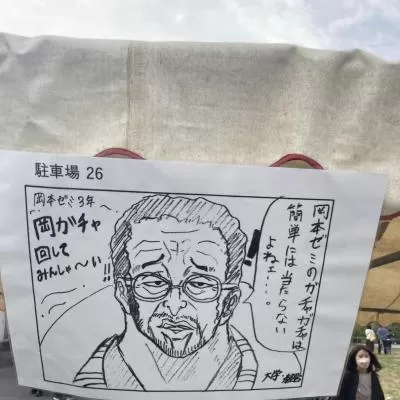 駐車場 26
岡本ゼミ3年
岡ガチャ
回して
みんしゃ〜い!!
岡本ゼミのガチャガチャは
簡単には当たらない
よねェ…。
大学